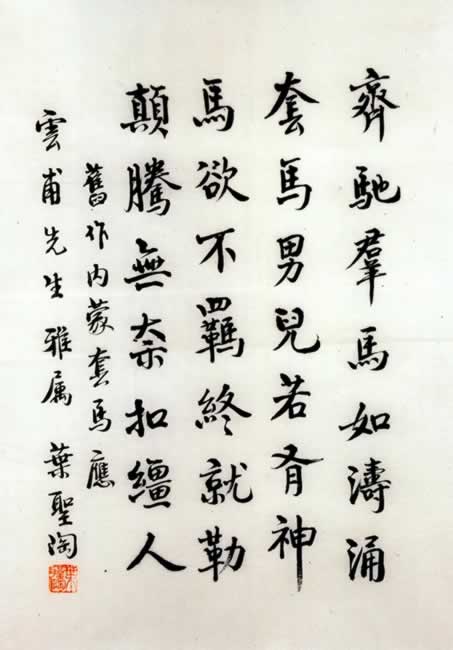 齊馳羣馬如濤涌
套馬男兒若有神
馬欲不羈終就勒
顛騰無柰扣繮人
舊作内蒙套馬應
雲甫先生雅属 葉聖陶